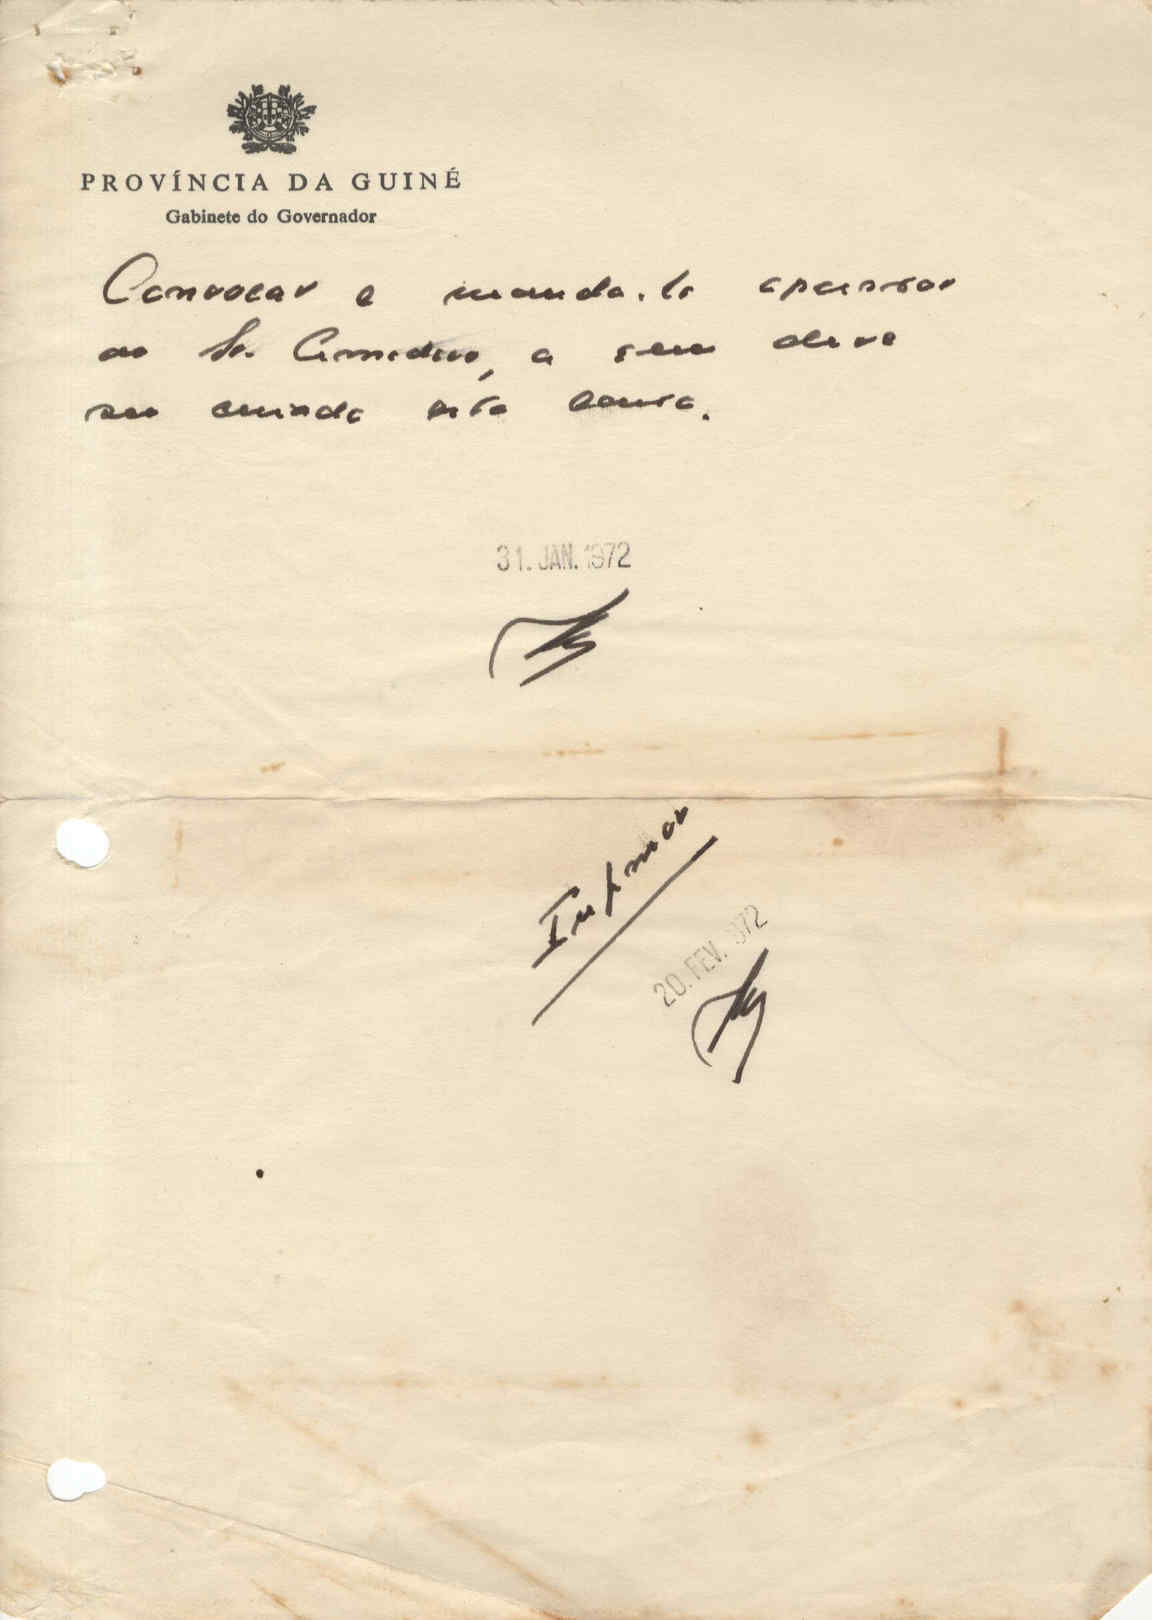 PROVÍNCIA DA GUINÉ
Gabinete do Governador
Convocar e manda-lo apresentar
ao Sr. a quem deve
ser enviada esta carta.
31. JAN. 1972
Informar
20. FEV. 1972